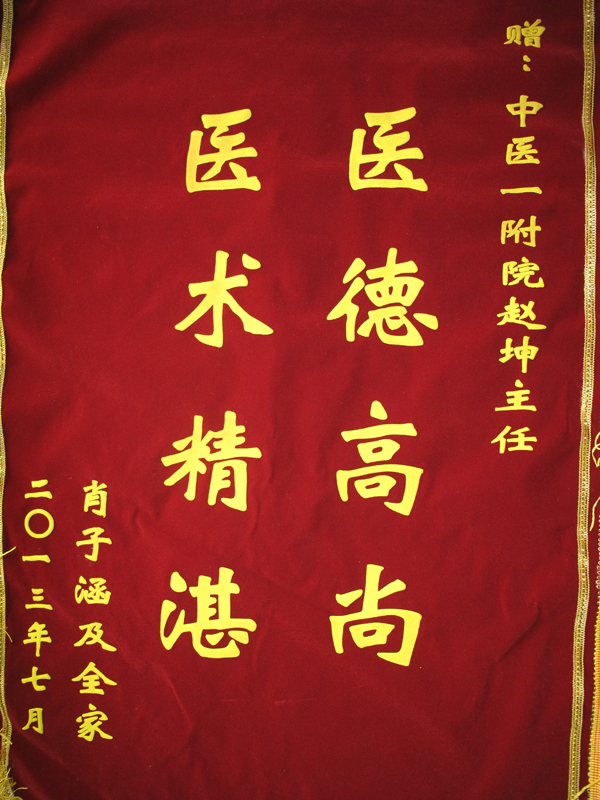 赠：中医一附院赵坤主任
医德高尚
医术精湛
肖子涵及全家
二〇一三年七月